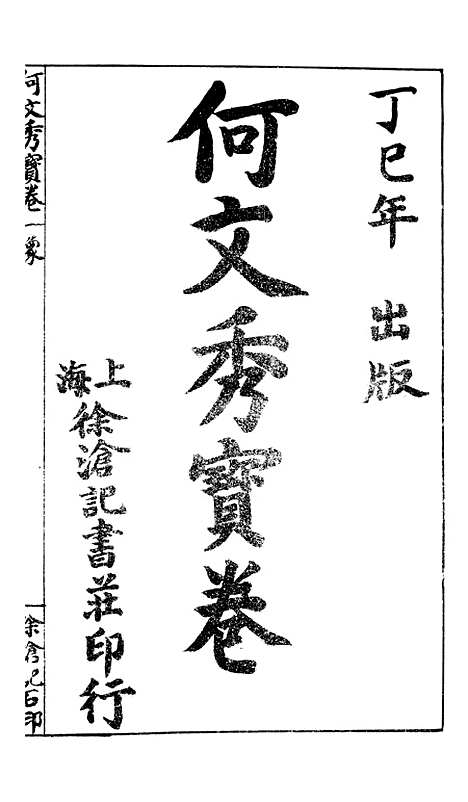 丁巳年 出版
何文秀寶卷
上海徐滄記書莊印行
何文秀寶卷 一 象
徐滄記石印